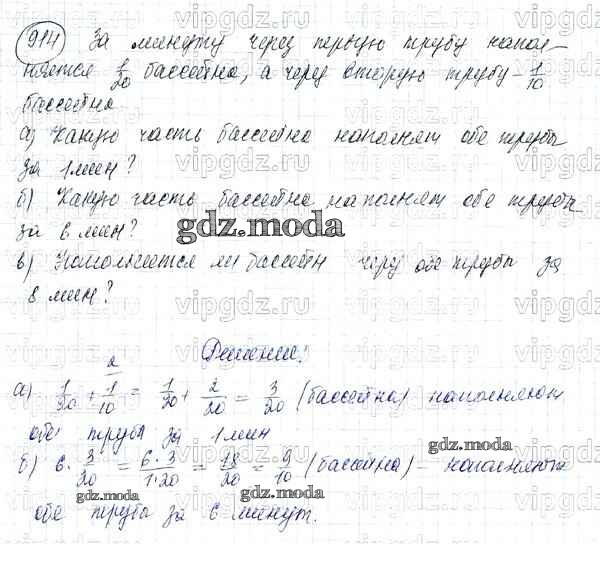 914 За минуту через первую трубу напол-
няется 1/20 бассейна, а через вторую трубу - 1/10
бассейна
а) Какую часть бассейна наполнят обе трубы
за 1 мин?
б) Какую часть бассейна наполнят обе трубы
за 6 мин?
в) Наполнится ли бассейн через обе трубы за
8 мин?
gdz.moda
Решение:
а) 1/20 + 1/10 (2 = 1/20 + 2/20 = 3/20 (бассейна) наполняют
обе трубы за 1 мин
б) 6 · 3/20 = 6·3/1·20 = 18/20 = 9/10 (бассейна) - наполняют
обе трубы за 6 минут.
gdz.moda
gdz.moda
gdz.moda
vipgdz.ru